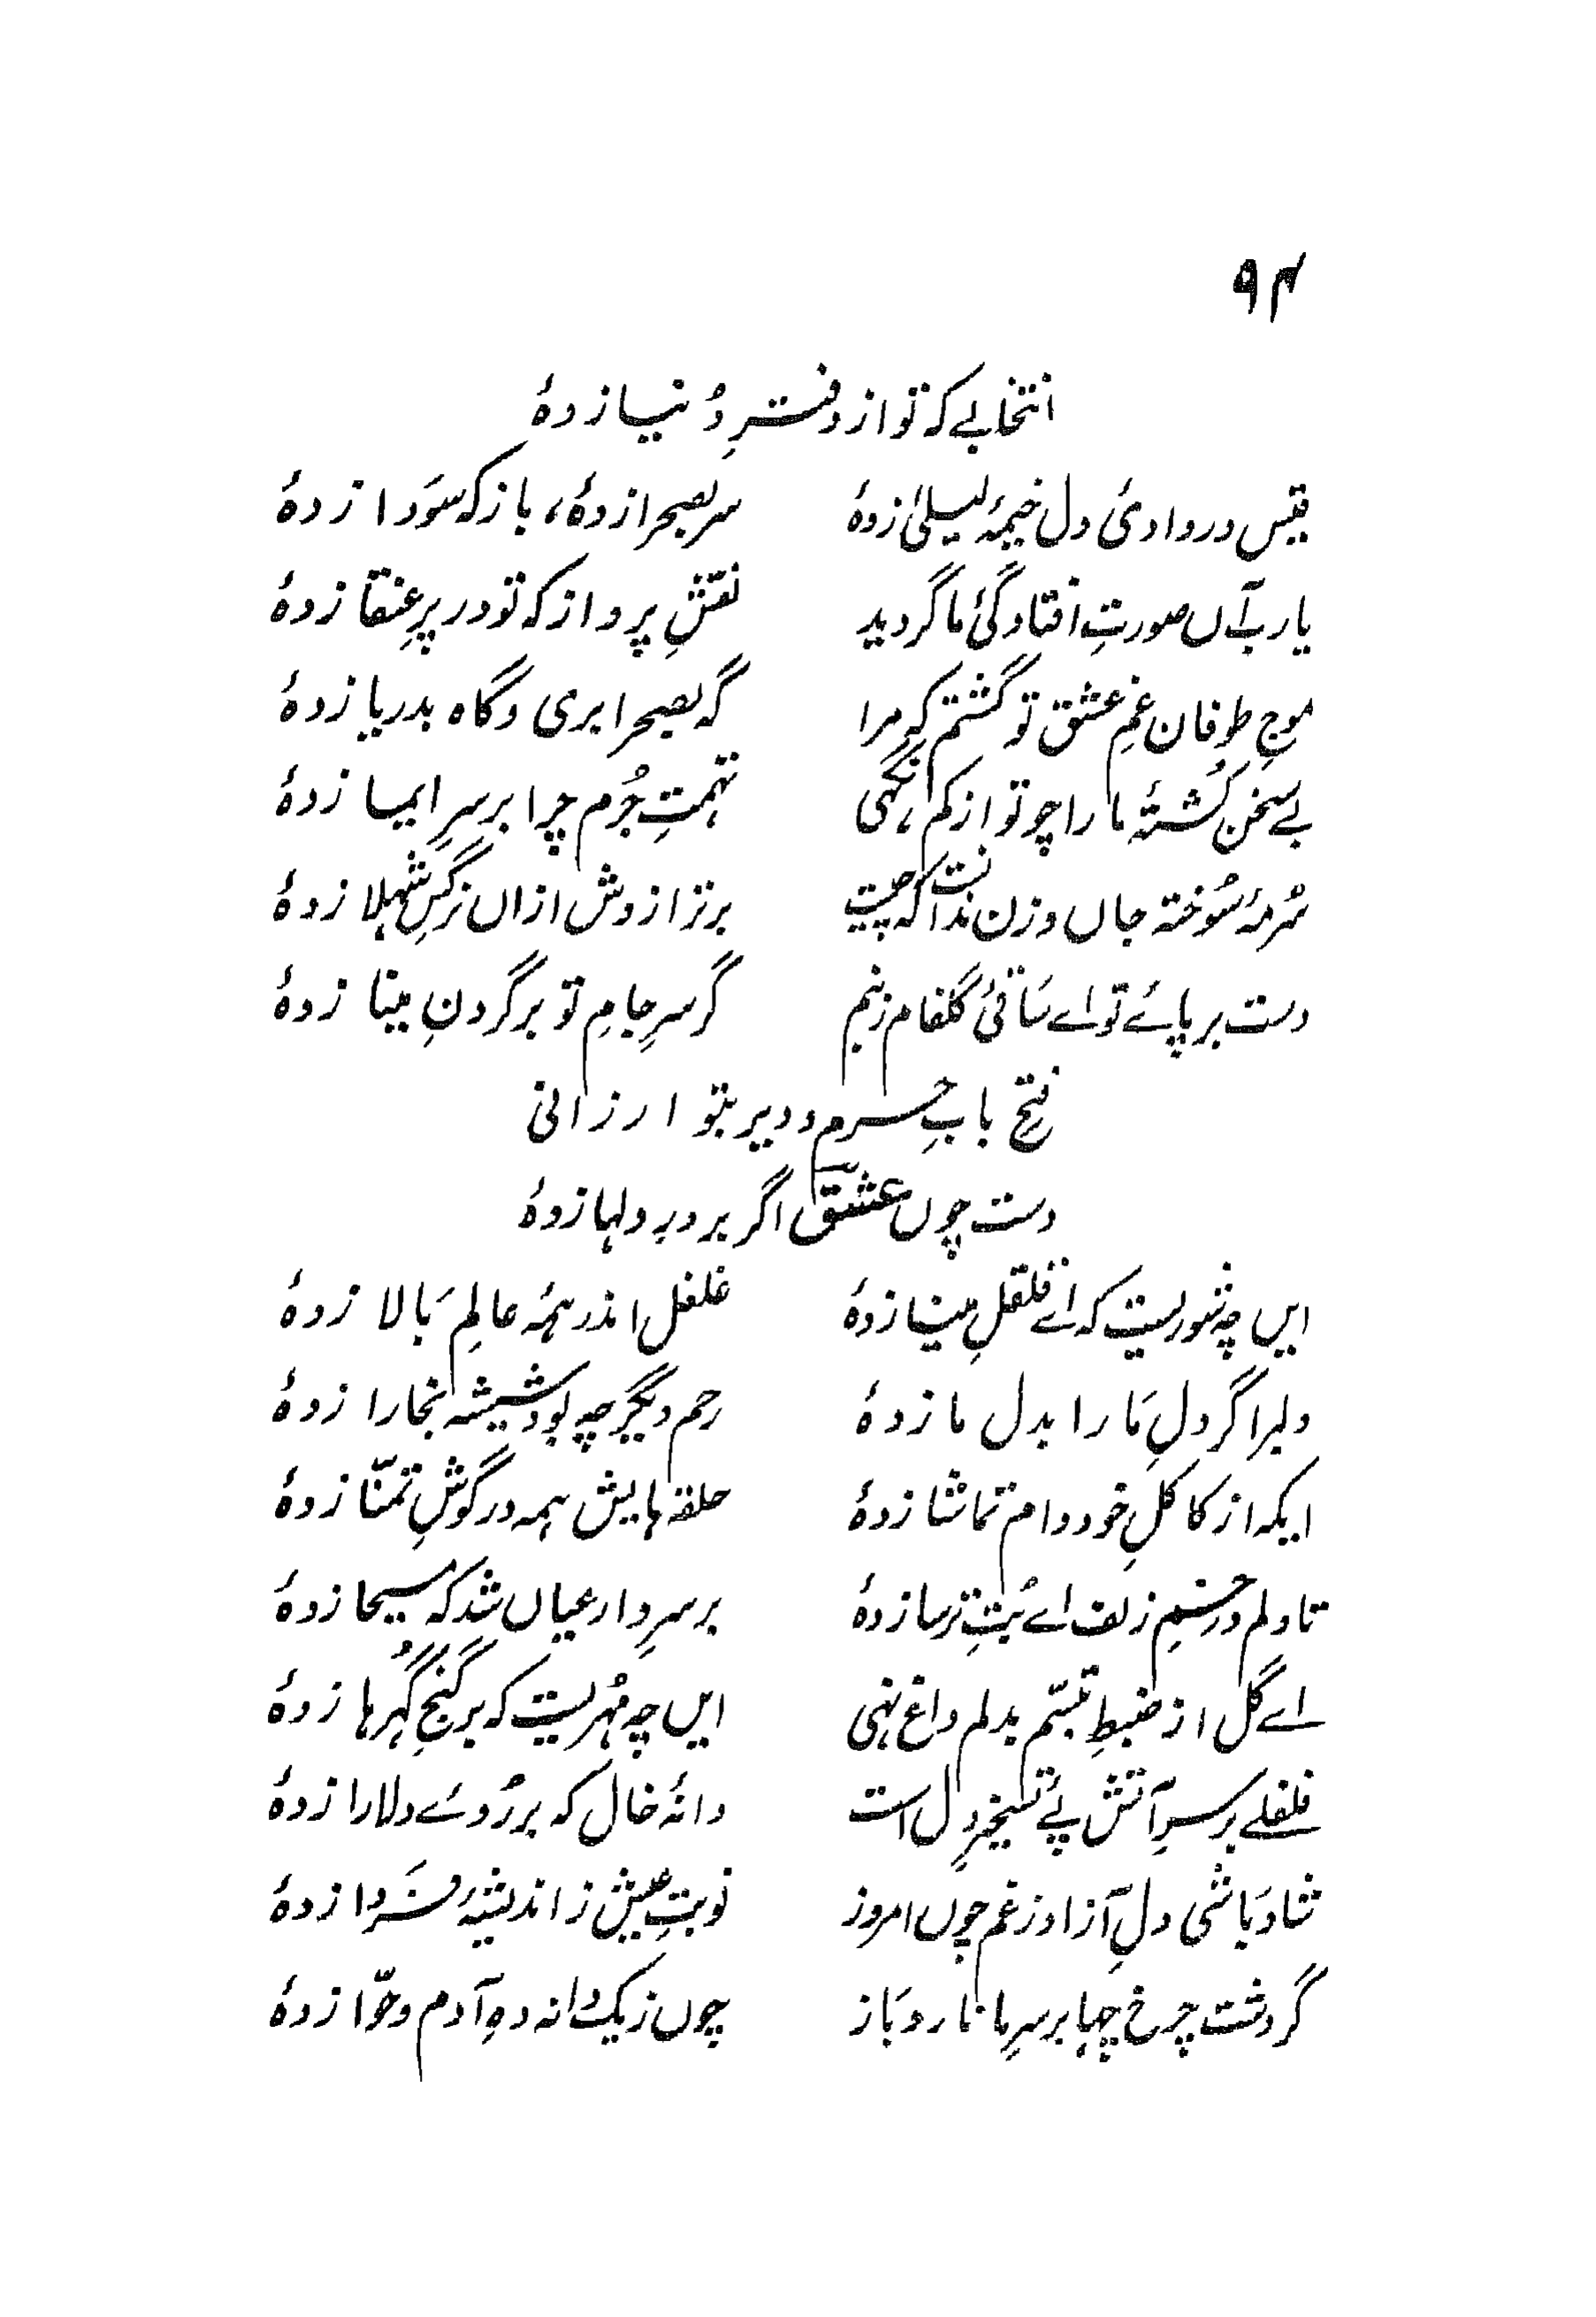 ۹۴
انتخابے کہ تو از دفترِ دُنیا زدهٔ
قیس در وادیٔ دل خیمۂ لیلیٰ زدهٔ سر بصحرا زدهٔ، باز کہ سَودا زدهٔ
یارب آں صورتِ افتادگیٔ ما گردید نقشِ پرواز کہ تو در پرِ عنقا زدهٔ
موجِ طوفان غمِ عشق تو گشتم کہ مرا گہ بصحرا بری و گاہ بدریا زدهٔ
بے سخن کُشتۂ ما را چو تو از کم نگہی تہمتِ جُرم چرا بر سرِ ایما زدهٔ
سُرمۂ سُوختہ جاں وزن ندانست کہ چیست برتر از وش ازاں نرگسِ شہلا زدهٔ
دست بر پائے تو اے سَاقیٔ گلفام زنم گر سرِ جامِ تو بر گردنِ مینا زدهٔ
فتحِ بابِ حرم و دیر بتو ارزانی
دست چوں عشقؔ اگر بر درِ دلہا زدهٔ
ایں چہ شوریست کہ اے قلقلِ مینا زدهٔ غلغل اندر ہمۂ عالمِ بَالا زدهٔ
دلبرا گر دلِ مَا را بدل ما زدهٔ رحم دیگر چہ بود شیشہ بخارا زدهٔ
ایکہ از کاکلِ خود دام تماشا زدهٔ حلقہ ہایش ہمہ در گوشِ تمنّا زدهٔ
تا دلم در خمِ زلف اے بُتِ ترسا زدهٔ بر سرِ دار عیاں شد کہ مسیحا زدهٔ
اے گل از ضبطِ تبسّم بدلم داغ نہی ایں چہ مُہریست کہ بر گنجِ گُہرہا زدهٔ
فلفلے بر سرِ آتش پۓ تسخیرِ دل است دانۂ خال کہ بر رُوئے دلارا زدهٔ
شاد بَاشی دلِ آزاد ز غم چوں امروز نوبتِ عیش ز اندیشۂ فَردا زدهٔ
گردشت چرخ چہا بر سرِ ما نارد بَاز چوں ز یک دانہ دہِ آدم و حوّا زدهٔ